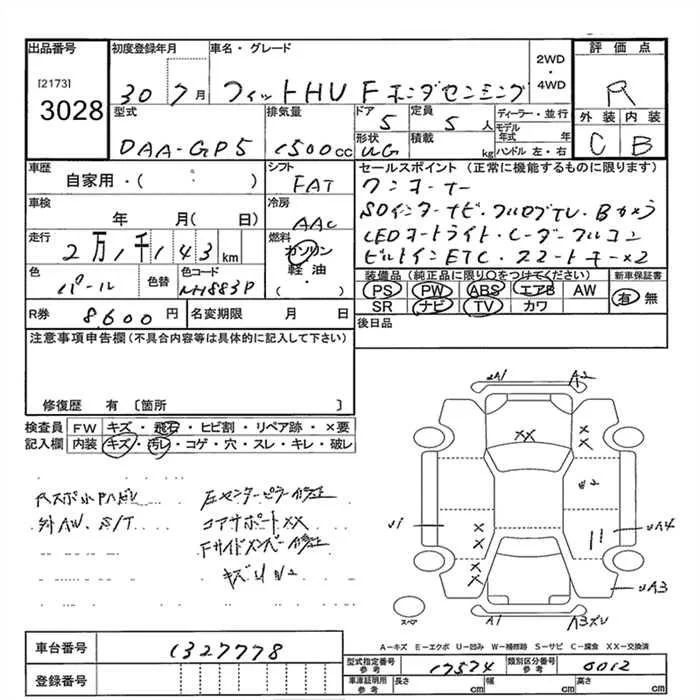 出品番号 初度登録年月 車名・グレード 2WD・4WD 評価点
[2173]
3028
30 7月 フィットHV F ホンダセンシング R
型式 排気量 ドア 定員 ディーラー・並行
DAA-GP5 1500cc 5 5人 モデル年式 年
形状 積載 kg ハンドル 左・右
外装 内装
C B
車歴 自家用・( ) シフト FAT
セールスポイント(正常に機能するものに限ります)
ワンオーナー
SDインターナビ・フルセグTV・Bカメラ
LEDオートライト・レーダークルコン
ビルトインETC・スマートキー×2
車検 年 月( 日) 冷房 AAC
走行 2万1千143km 燃料 ガソリン・軽油・( )
色 パール 色替 色コード NH883P
装備品(純正品に限り〇をつけてください) 新車保証書
PS PW ABS エアB AW 有 無
SR ナビ TV カワ
R券 8,600円 名変期限 月 日 後日品
注意事項申告欄(不具合内容等は具体的に記入して下さい)
修復歴 有 〔箇所 〕
検査員 FW キズ・飛石・ヒビ割・リペア跡・×要
記入欄 内装 キズ・汚レ・コゲ・穴・スレ・キレ・破レ
左センターピラー修正
外AW、S/T コアサポートXX
Fサイドメンバー修正
A1 A2
XX
XX
U1 UA4
XX
XX
UA3
A1 A3ズリ
スペア
A―キズ E―エクボ U―凹み W―補修跡 S―サビ C―腐食 XX―交換済
車台番号 1327778
登録番号
型式指定番号 参考 17574 類別区分番号 参考 0012
車庫証明用 参考 長さ cm 幅 cm 高さ cm